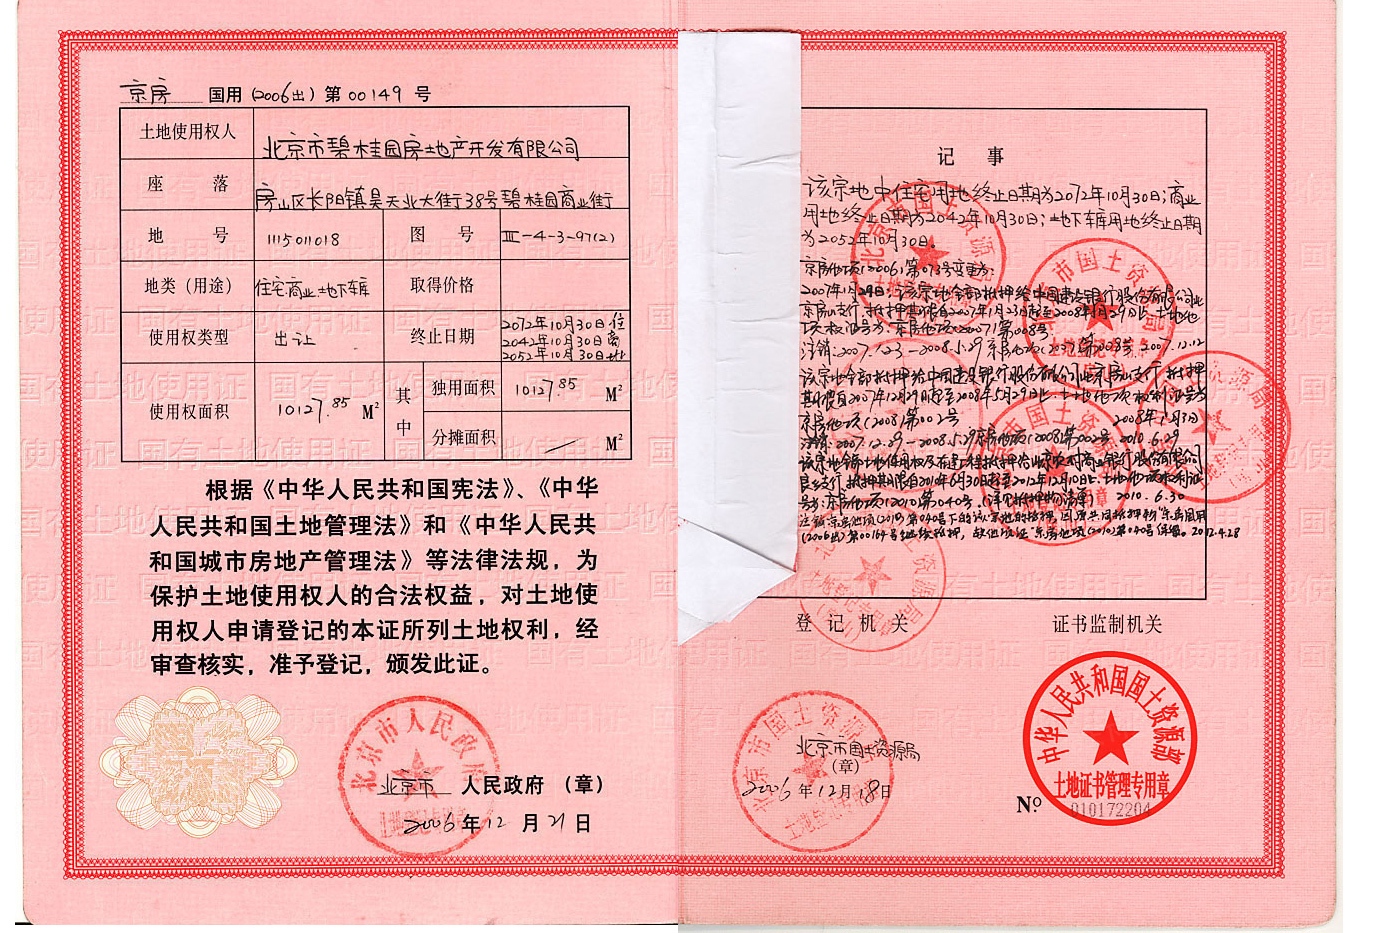 京房 国用(2006出)第00149号
土地使用权人 北京市碧桂园房地产开发有限公司
座落 房山区长阳镇昊天北大街38号碧桂园商业街
地号 111501018 图号 III-4-3-97(2)
地类（用途） 住宅商业、地下车库 取得价格
使用权类型 出让 终止日期 2072年10月30日住
2042年10月30日商
2052年10月30日地
使用权面积 10127.85 M² 其中 独用面积 10127.85 M²
分摊面积 / M²
根据《中华人民共和国宪法》、《中华
人民共和国土地管理法》和《中华人民共
和国城市房地产管理法》等法律法规，为
保护土地使用权人的合法权益，对土地使
用权人申请登记的本证所列土地权利，经
审查核实，准予登记，颁发此证。
北京市 人民政府（章）
2006年12月21日
记事
该宗地中住宅用地终止日期为2072年10月30日；商业
用地终止日期为2042年10月30日；地下车库用地终止日期
为2052年10月30日。
京房他项(2006)第073号变更为：
2007年1月29日：该宗地全部抵押给中国建设银行股份有限公司北
京房山支行，抵押期限自2007年1月23日起至2008年1月29日止，土地他
项权证号为：京房他项(2007)第008号。
注销：2007.1.23-2008.1.29京房他项(2007)第008号 2007.12.12
该宗地全部抵押给中国建设银行股份有限公司北京房山支行，抵押
期限自2007年12月29日起至2008年5月29日止，土地他项权利证号为
京房他项(2008)第002号 2008年1月3日
注销：2007.12.29-2008.5.29京房他项(2008)第002号 2010.6.29
该宗地土地使用权及在建工程抵押给北京农村商业银行股份有限公司
良乡支行，抵押期限自2010年6月30日起至2012年12月10日止，土地他项权利证
号为：京房他项(2010)第040号。（详见抵押物清单） 2010.6.30
注销京房他项(2010)第040号下的该宗地的抵押，因
(2006出)第00164号继续抵押，故他项证"京房他项(2010)第040号保留。2012.4.28
登记机关 证书监制机关
北京市国土资源局
（章）
2006年12月18日
中华人民共和国国土资源部
土地证书管理专用章
Nº 010172204
北京市人民政府
北京市国土资源局